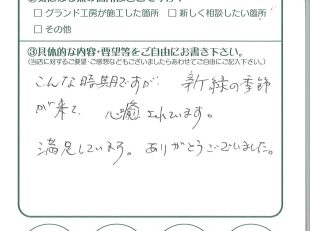 □ グランド工房が施工した箇所　□ 新しく相談したい箇所
□ その他
③具体的な内容・要望等をご自由にお書き下さい。
(当店に対するご要望・ご感想などもございましたらあわせてご自由にご記入下さい。)
こんな時期ですが 新緑の季節
が来て、 心癒されています。
満足しています。 ありがとうございました。